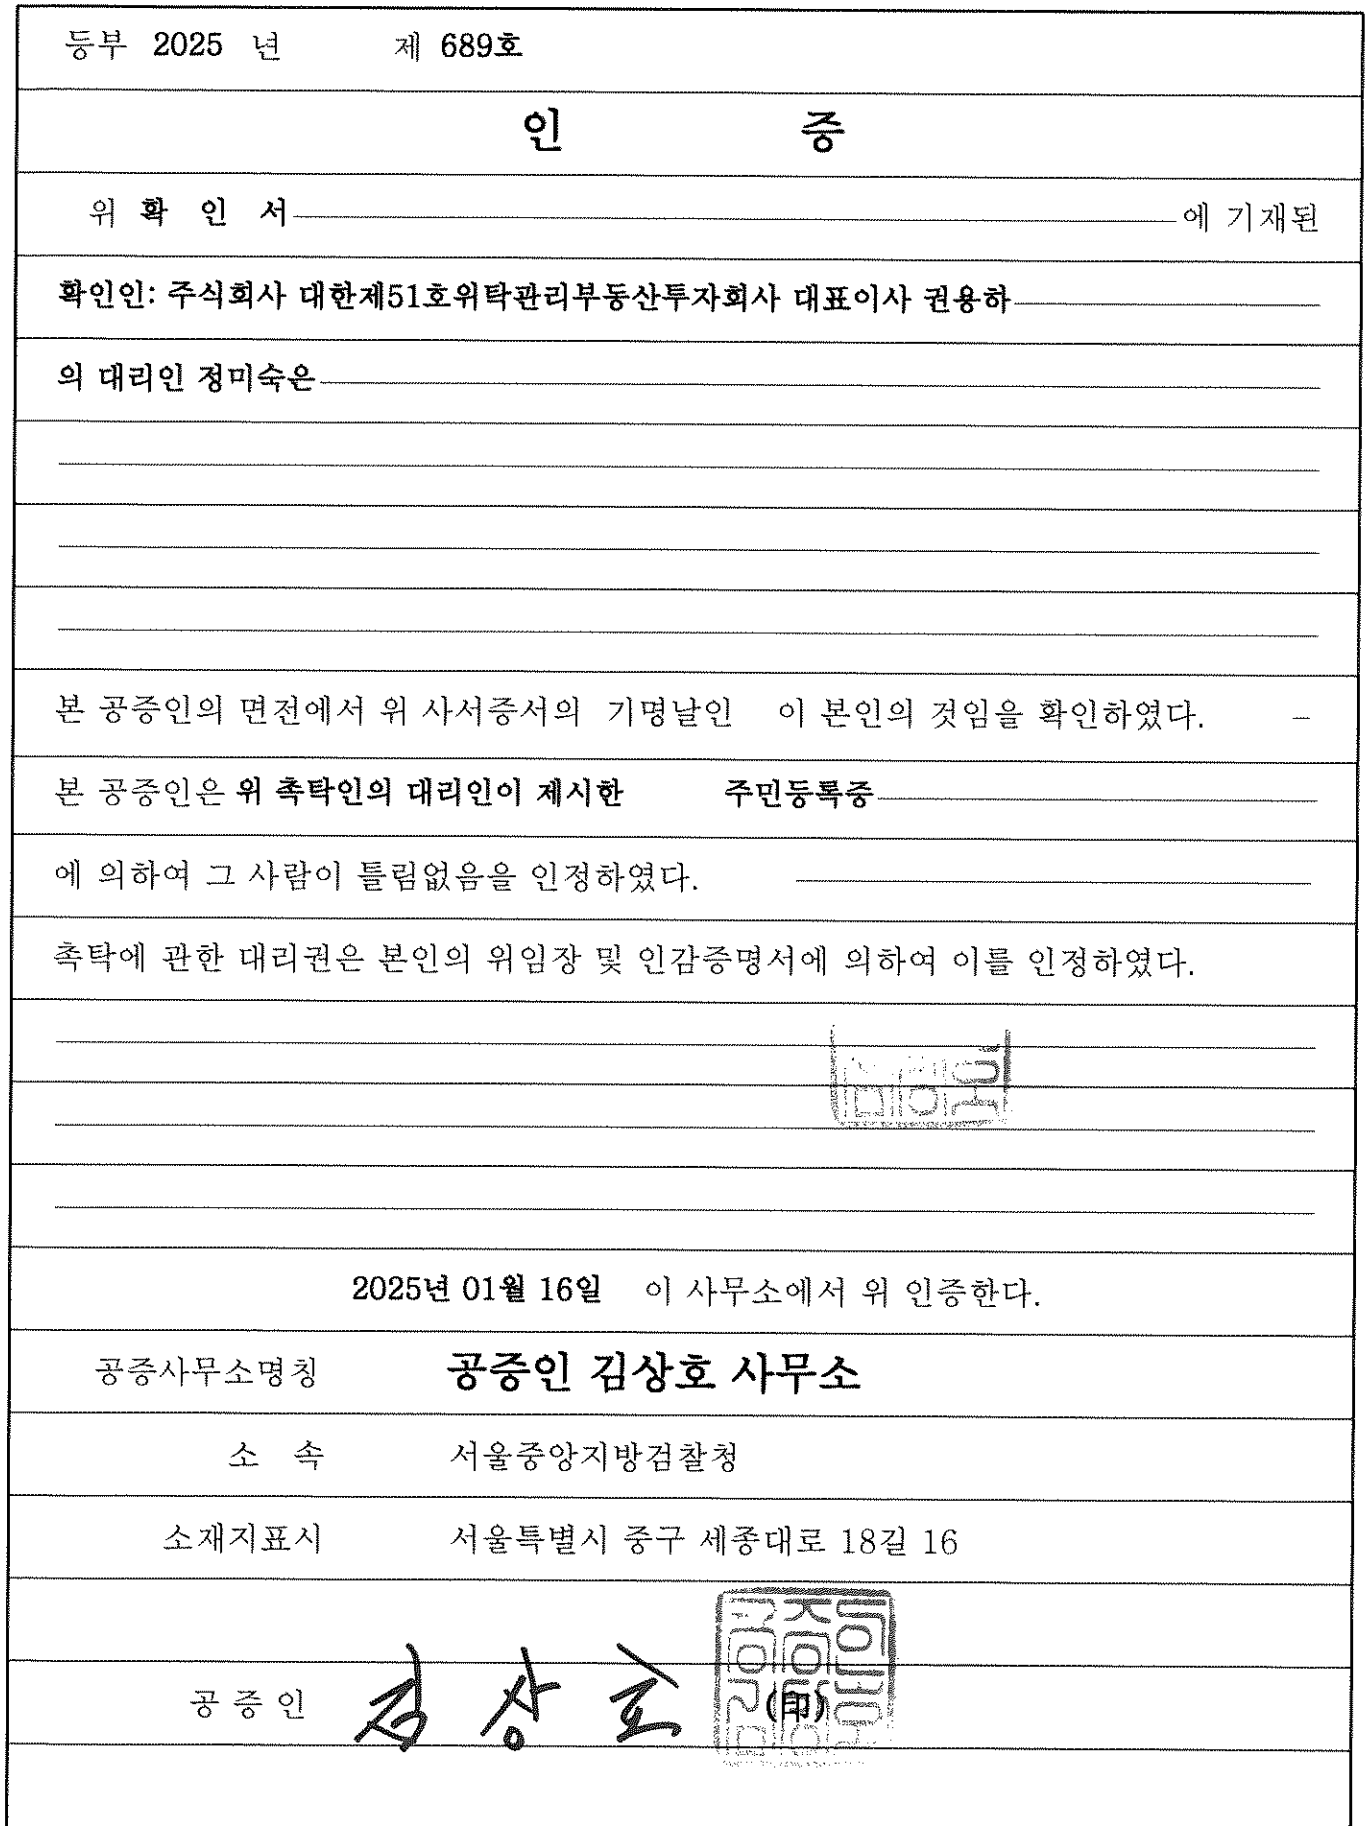 등부 2025 년 제 689호
인 증
위 확 인 서 에 기재된
확인인: 주식회사 대한제51호위탁관리부동산투자회사 대표이사 권용하
의 대리인 정미숙은
본 공증인의 면전에서 위 사서증서의 기명날인 이 본인의 것임을 확인하였다. –
본 공증인은 위 촉탁인의 대리인이 제시한 주민등록증
에 의하여 그 사람이 틀림없음을 인정하였다.
촉탁에 관한 대리권은 본인의 위임장 및 인감증명서에 의하여 이를 인정하였다.
2025년 01월 16일 이 사무소에서 위 인증한다.
공증사무소명칭 공증인 김상호 사무소
소 속 서울중앙지방검찰청
소재지표시 서울특별시 중구 세종대로 18길 16
공증인 김상호 (印)